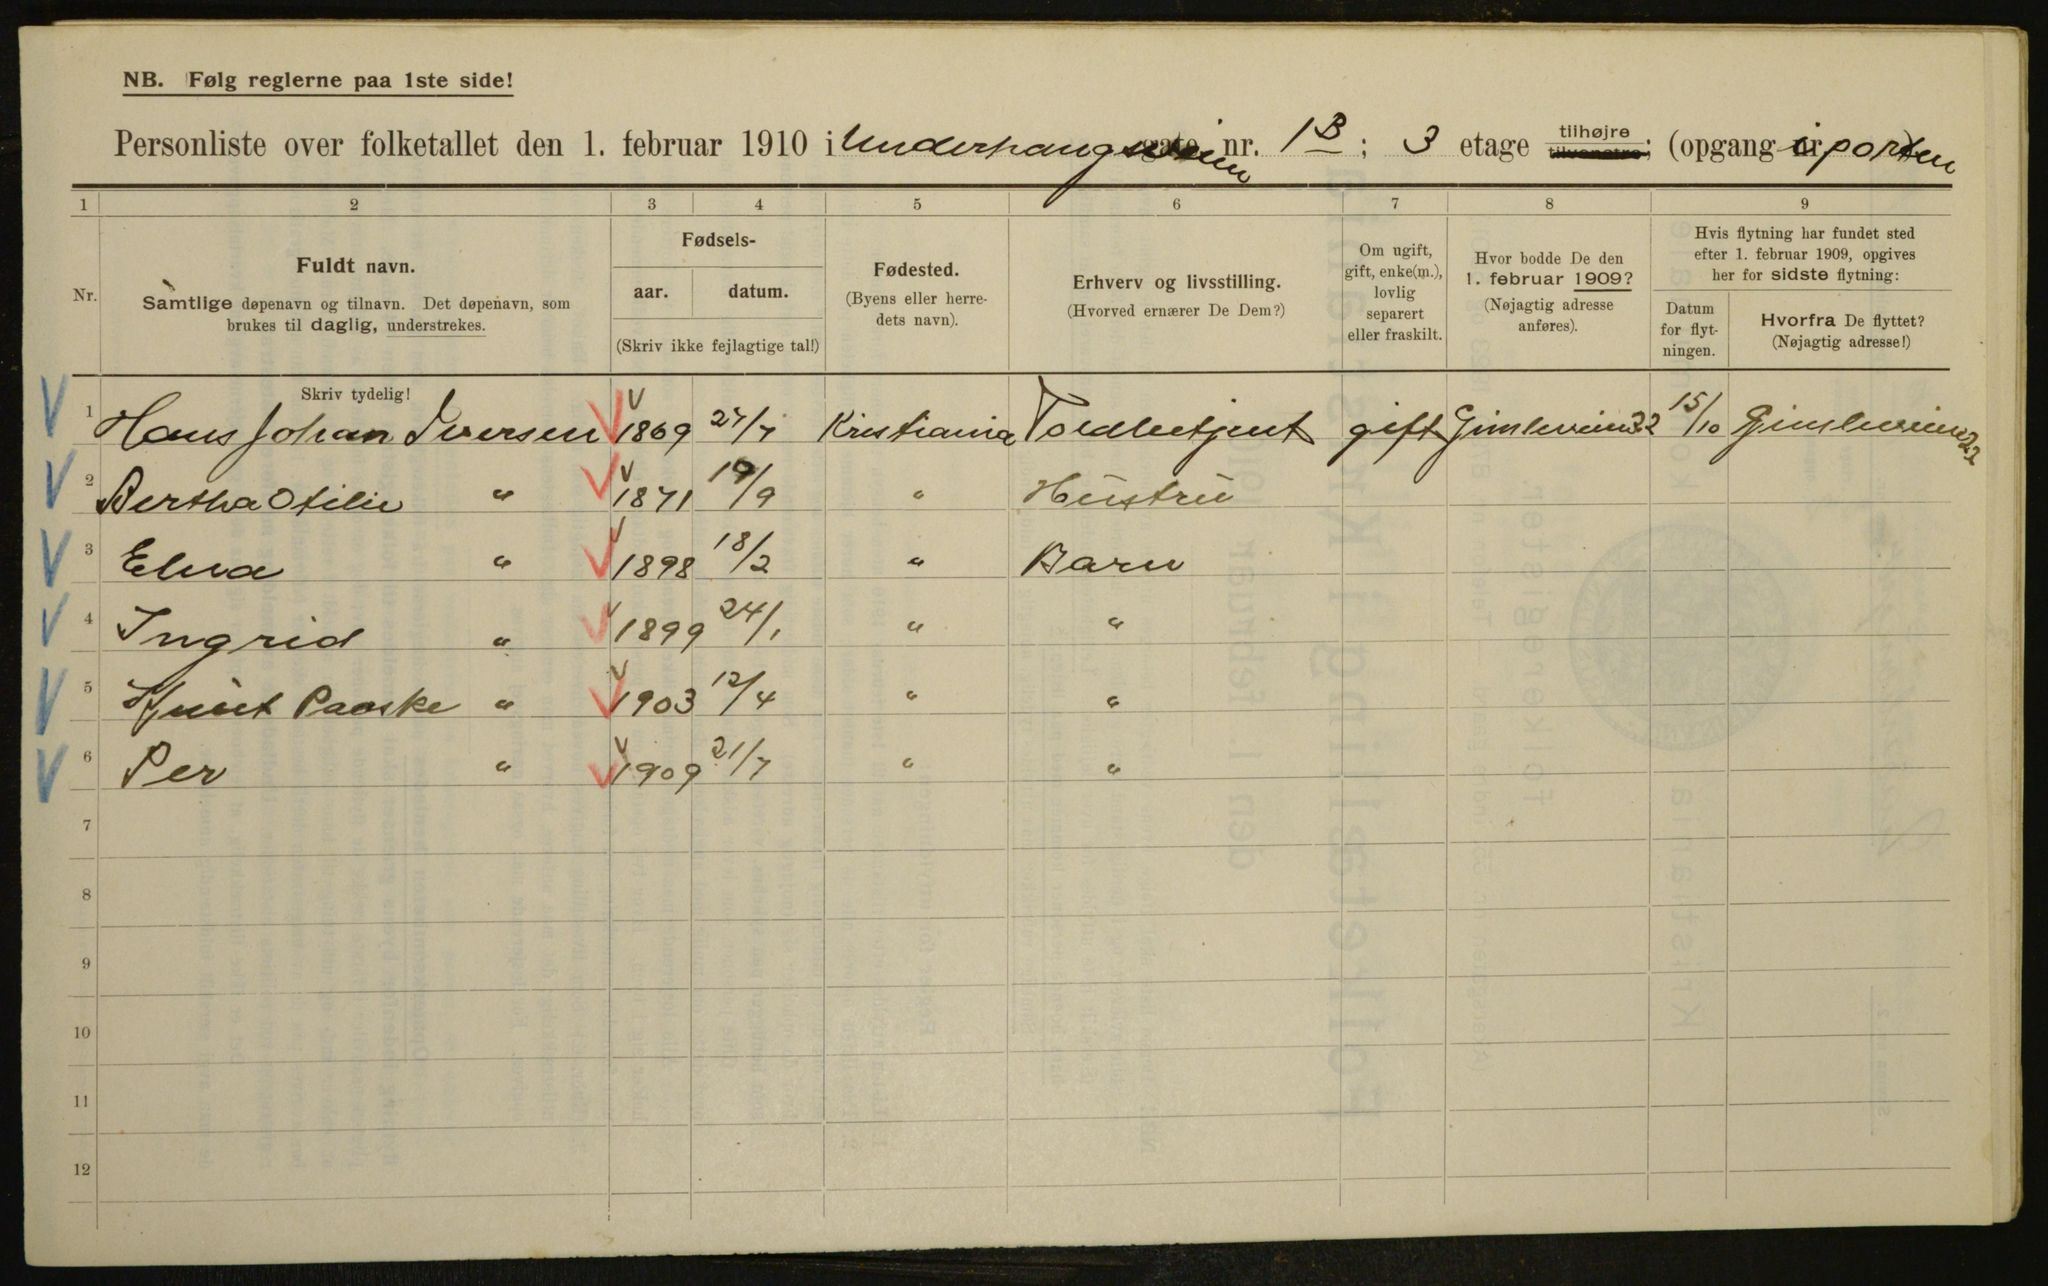 NB. Følg reglerne paa 1ste side!
Personliste over folketallet den 1. februar 1910 i Underhaugsveien gate nr. 1B; 3 etage tilhøjre tilvenstre; (opgang nr. i porten
1 2 3 4 5 6 7 8 9
Nr.
Fuldt navn.
Samtlige døpenavn og tilnavn. Det døpenavn, som
brukes til daglig, understrekes.
Fødsels-
aar. datum.
(Skriv ikke fejlagtige tal!)
Fødested.
(Byens eller herre-
dets navn).
Erhverv og livsstilling.
(Hvorved ernærer De Dem?)
Om ugift,
gift, enke(m.),
lovlig
separert
eller fraskilt.
Hvor bodde De den
1. februar 1909?
(Nøjagtig adresse
anføres).
Hvis flytning har fundet sted
efter 1. februar 1909, opgives
her for sidste flytning:
Datum
for flyt-
ningen.
Hvorfra De flyttet?
(Nøjagtig adresse!)
Skriv tydelig!
1 Hans Johan Iversen 1869 27/7 Kristiania Toldbetjent gift Gimleveien 22 15/10 Gimleveien 22
2 Bertha Otilie " 1871 19/9 " Hustru
3 Elna " 1898 18/2 " Barn
4 Ingrid " 1899 24/1 " "
5 Paaske " 1903 12/4 " "
6 Per " 1909 21/7 " "
7
8
9
10
11
12